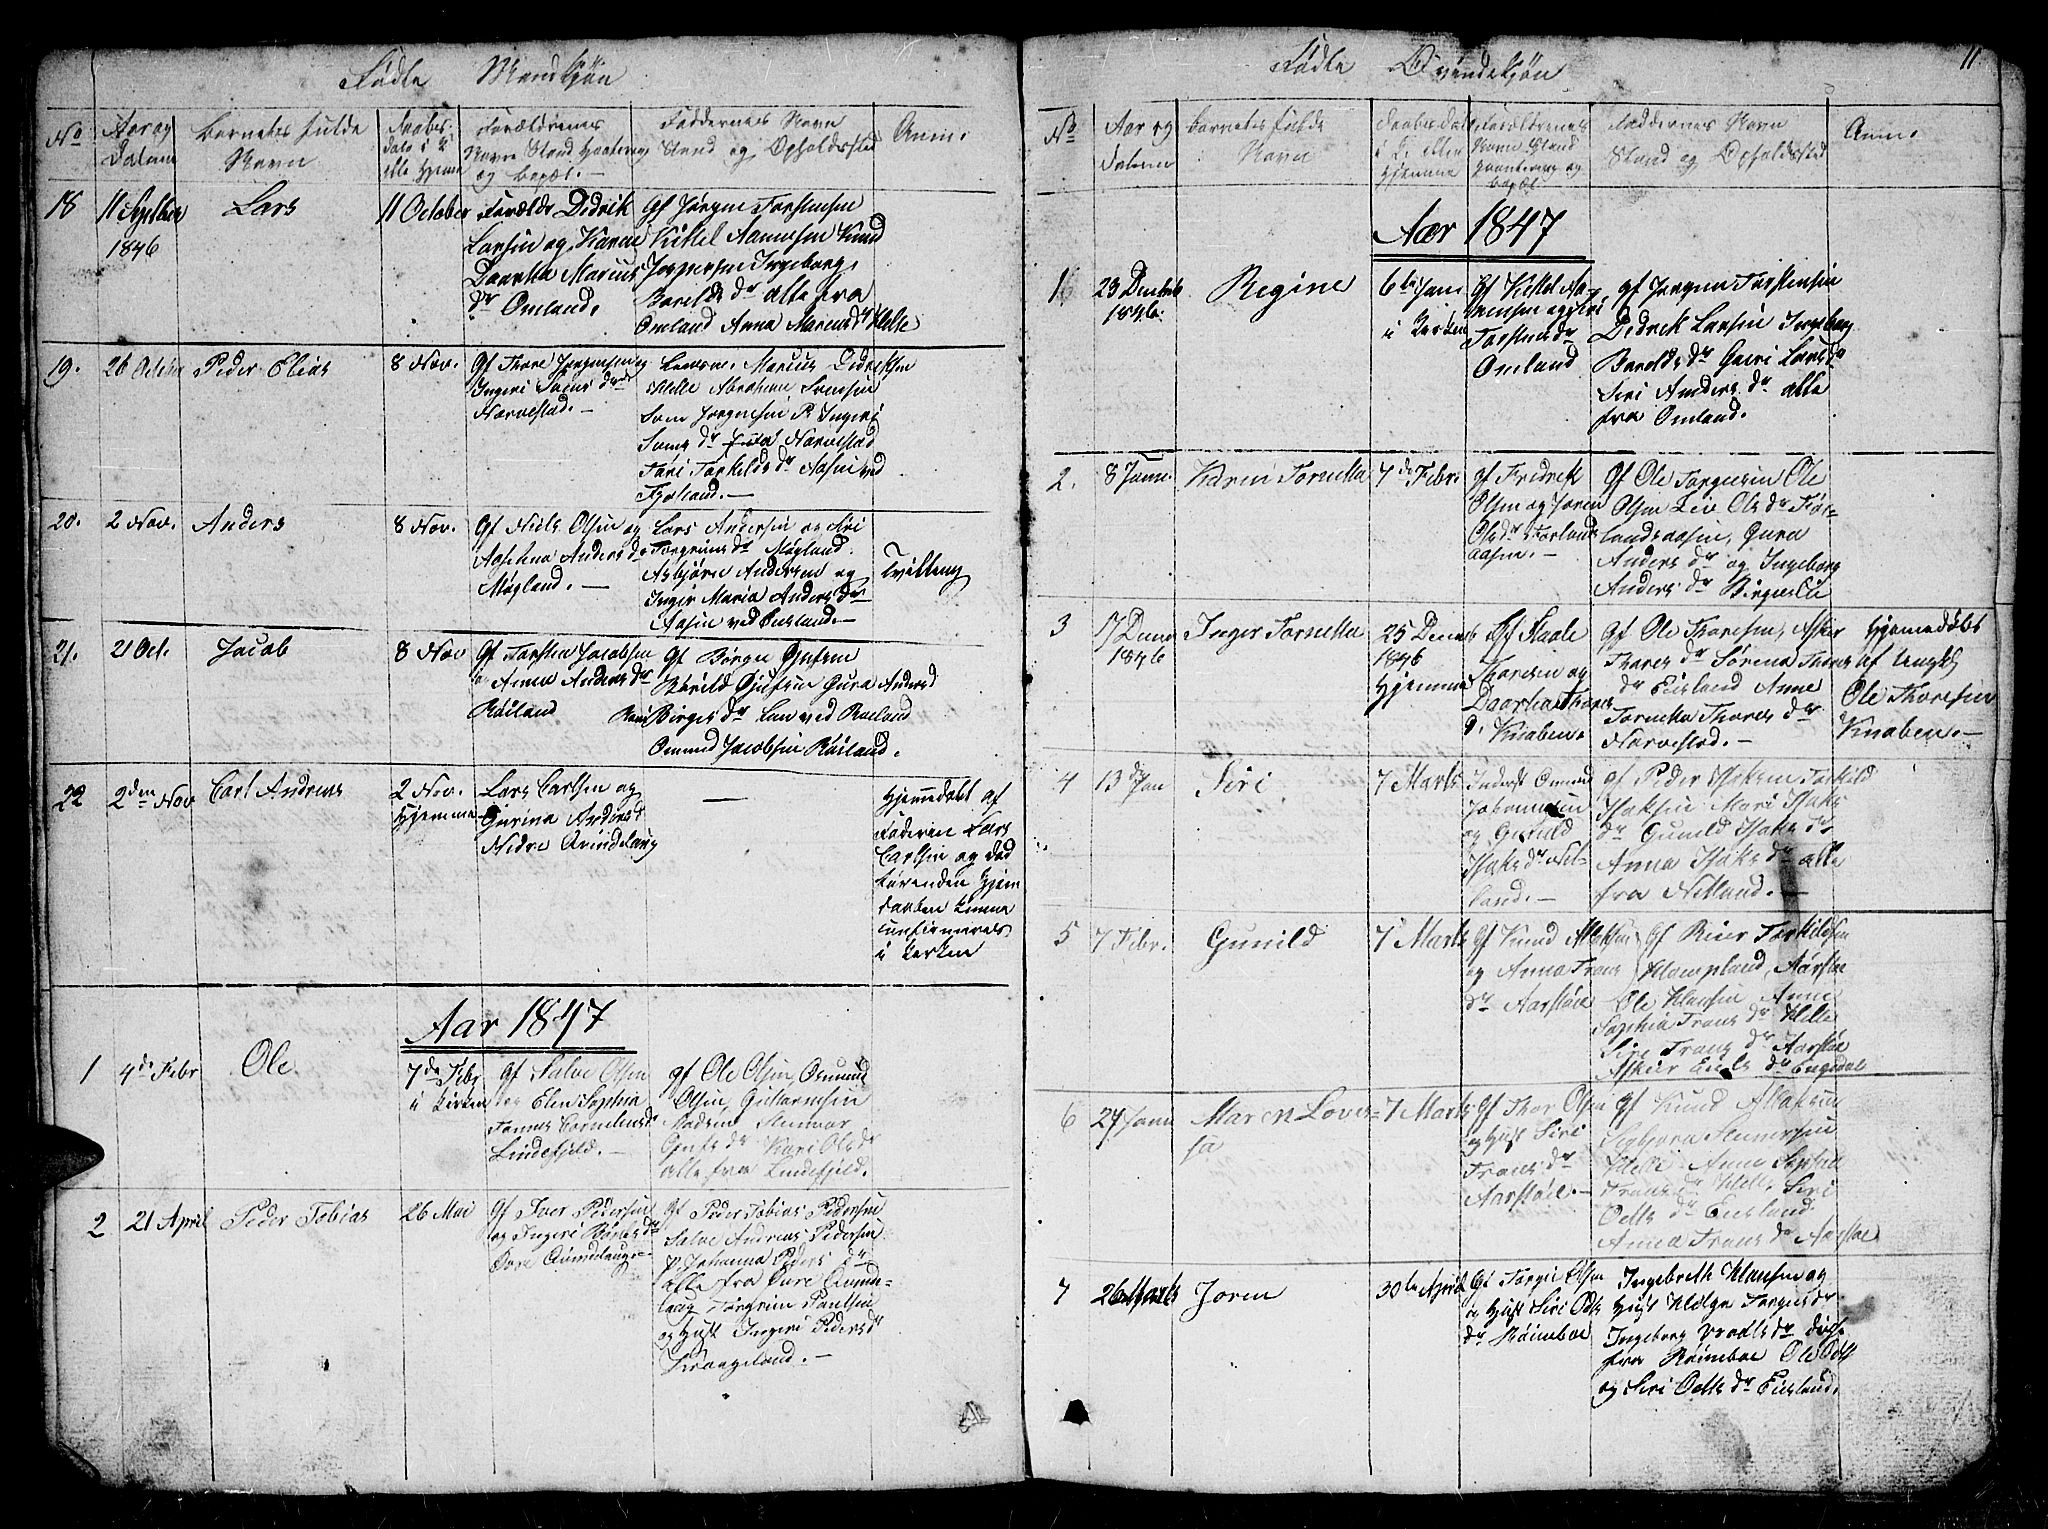 Fødte Mandkjøn
No
Aar og Datum
Barnets fulde Navn
Daabes Dato i K. eller Hjemme
Forældrenes Navn Stand Haandtering og Bopæl. -
Faddernes Navn Stand og Opholdssted
Anm.
18
11 September 1846
Lars
11 October
Forældre Dedrik
Larsen og Karen
Daarthea Marcus
dr Omland.
Gf Jørgen Torstensen
Kittel Aanensen Knud
Jespersen Ingeborg
Barolds dr alle fra
Omland Anna Marcusdr Helle
19.
26 Octbr
Peder Elias
8 Nov.
Gf Thore Jørgensen og
Ingeri Sams dr
Narvestad. -
Marcus Didriksen
Helle Abraham Svensen
Sam Jørgensen Ingeri
Sams dr Narvestad
Tori Torkelds dr Aasen ved
Fjotland. -
20.
2 Nov.
Anders
8 Nov.
Gf Niels Olsen og
Anders dr
Møgland. -
Lars Andersen og Siri
Torgrims dr Møgland.
Asbjørn Andersen og
Inger Maria Anders dr
Aasen ved Eiesland. -
Tvilling
21.
21 Oct.
Jacob
8 Nov
Gf Torsten Jacobsen
og Anna Anders dr
Røiland
Gf Børge
Gura Anders d
Birges dr ved Røiland
Omund Jacobsen Røiland.
22
2den Nov
Carl Andreas
2 Nov.
Hjemme
Lars Carlsen og
Gurina Anders d
Nedre Qvindslaug
—
Hjemmedøbt af
Faderen Lars
Carlsen og død
førenden Hjem
daaben kunne
confirmeres
i Kirken
Aar 1847
1
4de Febr
Ole
7de Febr
i Kirken
Gf Salve Olsen
og Elen Sophia
Tonnes Cornelius d
Lindefjeld. -
gf Ole Olsen, Osmund
Olsen, Guttormsen
Madsen
dr Kari Ols dr
alle fra Lindefjeld.
2
21 April
Peder Tobias
26 Mai
Gf Iver Pedersen
og Ingeri dr
Øvre Qvindslaug -
Gf Peder Tobias Pedersen
Salve Andreas Pedersen
P. Johanna Peders dr
alle fra Øvre Qvinds-
laug Torgrim Paulsen
og Hust Ingeri Peders dr
Kraageland. -
Fødte Qvindekjøn
11
No
Aar og Datum
Barnets fulde Navn
Daabes Dat i K. eller Hjemme
Forældrenes Navn Stand Haandtering og Bopæl
Faddernes Navn Stand og Opholdssted
Anm.
Aar 1847
1
23 Decemb
1846.
Regine
6te Jan
i Kirken
Gf Kittel Aa-
nensen og Siri
Torstens dr
Omland
gf Jørgen Torstensen
Dedrik Larsen Ingeborg
Barolds dr Guri Lars dr
Siri Anders dr alle
fra Omland.
2.
8 Janu.
Karen Tornetta
7de Febr.
Gf Fredrik
Olsen og Joren
Ols dr Førlands
aasen. -
Gf Ole Torgiesen Ole
Olsen Liv Ols dr Før-
landsaasen, Gura
Anders dr og Ingeborg
Anders dr Birgeslii
3
17 Decem
1846
Inger Tornetta
25 Decemb
1846
Hjemme
Gf Staale
Thoresen og
Daarthea Thores
d. Knaben.
Gf Ole Thoresen, Asker
Thores dr Sørena Thores
dr Eiesland Anne
Tornetta Thores dr
Narvestad. -
Hjemmedøbt
af Ungkl
Ole Thoresen
Knaben. -
4
13de Jan
Siri
7 Marts
Inderst Omund
Johannesen
og Gunild
Isaks dr Net-
land. -
gf Peder Isaksen Torkild
Isaksen Mari Isaks
dr Gunild Isaks dr
Anna Isaks dr alle
fra Netland. -
5
7 Febr.
Gunild
7 Marts
Gf Knud Atlaksen
og Anna Trons
dr Aarstøe
Gf Reier Torkildsen
Aarstøe
Ole Klausen Anne
Sophia Trons dr Helle
Siri Trons dr Aarstøe
Asker Eiels dr Engedal
6
27 Janu
Maren Lovi=
sa
7 Marts
Gf Thor Olsen
og Hust Siri
Trons dr
Aarstøe. -
Gf Knud Atlaksen
Sigbjørn Steinersen
Helle Anne Sophie
Trons dr Helle Siri
Oelts dr Eiesland.
Anna Trons dr Aarstøe
7
26 Marts
Joren
30te April
Gf Torgie Olsen
og Hust Siri Oelts
dr Røineboe
Ingebreth Klausen og
Hust Helga Torgies dr
Ingeborg dr disse
fra Røineboe Ole Oelts
og Siri Oelts dr Eiesland.